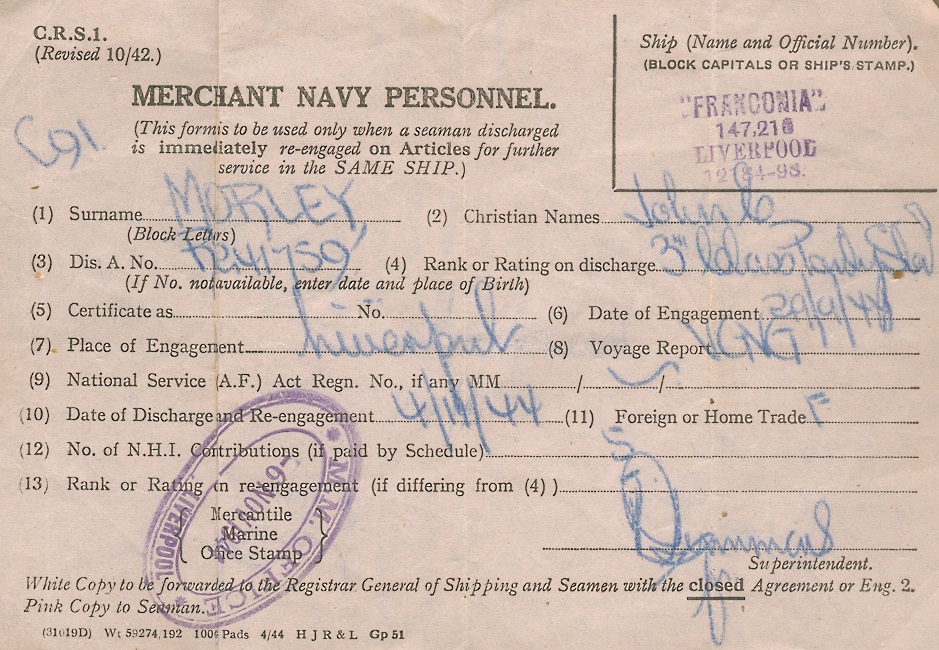 C.R.S.1.
(Revised 10/42.)
Ship (Name and Official Number).
(BLOCK CAPITALS OR SHIP'S STAMP.)
"FRANCONIA"
147,216
LIVERPOOL
MERCHANT NAVY PERSONNEL.
(This form is to be used only when a seaman discharged
is immediately re-engaged on Articles for further
service in the SAME SHIP.)
(1) Surname MORLEY (2) Christian Names John C
(Block Letters)
(3) Dis. A. No. (4) Rank or Rating on discharge 3rd Class
(If No. not available, enter date and place of Birth)
(5) Certificate as No. (6) Date of Engagement 29/9/44
(7) Place of Engagement Liverpool (8) Voyage Report VGNG
(9) National Service (A.F.) Act Regn. No., if any MM / /
(10) Date of Discharge and Re-engagement 4/11/44 (11) Foreign or Home Trade F
(12) No. of N.H.I. Contributions (if paid by Schedule) 5
(13) Rank or Rating on re-engagement (if differing from (4) )
Mercantile
Marine
Office Stamp
M.M. OFFICE
LIVERPOOL
Superintendent.
White Copy to be forwarded to the Registrar General of Shipping and Seamen with the closed Agreement or Eng. 2.
Pink Copy to Seaman.
(31019D) Wt 59274,192 100@ Pads 4/44 H J R & L Gp 51